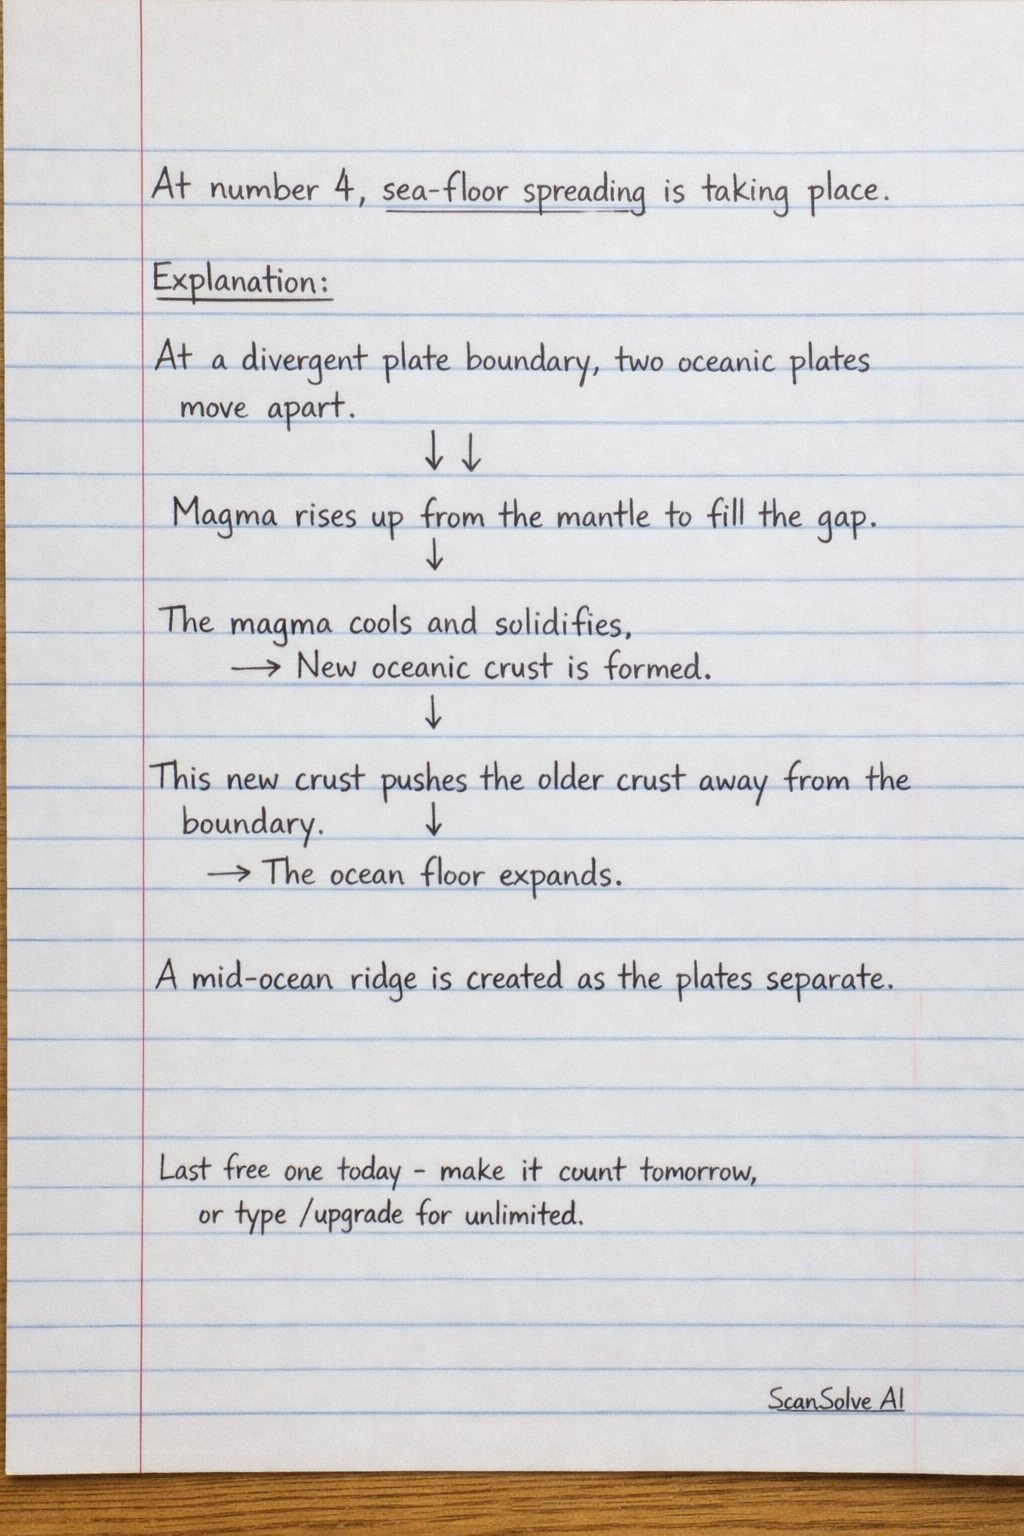 At number 4, sea-floor spreading is taking place.
Explanation:
At a divergent plate boundary, two oceanic plates
move apart.
↓ ↓
Magma rises up from the mantle to fill the gap.
↓
The magma cools and solidifies,
→ New oceanic crust is formed.
↓
This new crust pushes the older crust away from the
boundary. ↓
→ The ocean floor expands.
A mid-ocean ridge is created as the plates separate.
Last free one today - make it count tomorrow,
or type /upgrade for unlimited.
ScanSolve AI